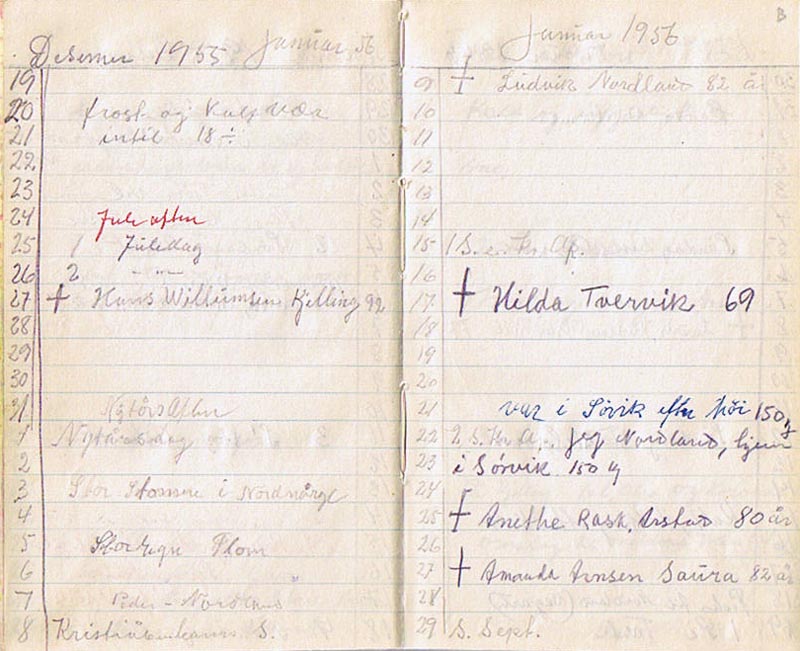 Desemer 1955 Januar 56
19
20 frost og kulf vær
21 intil 18 ÷
22
23
24 Juleaften
25 1 Juledag
26 2 -"-
27 † Hans Willumsen Kjelling 92
28
29
30
31 Nytårsaften
1 Nytårsdag
2
3 Stor Stomm i Nordnårge
4
5 Storregn Flom
6
7 Peder - Nordland
8 S.
Januar 1956
B
9 † Ludvik Nordland 82 år
10
11
12
13
14
15 1 S. e. Kr. Ap.
16
17 † Hilda Tvervik 69
18
19
20
21 var i Sörvik efter höi 150
22 2 S. Kr. A. Nordland, hjem
23 i Sörvik 150 kg
24
25 † Anethe Rask, Arstad 80 år
26
27 † Amanda Arnsen Saura 82 år
28
29 S. Sept.